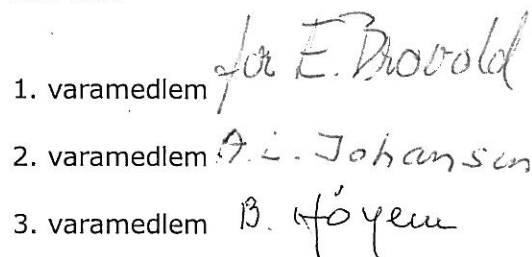 1. varamedlem for E. Brovold
2. varamedlem A. L. Johansen
3. varamedlem B. Høyem